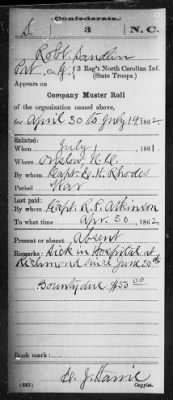 Confederate.
S 3 N.C.
Robt Sandlin
Pvt, Co. G, 3 Reg't North Carolina Inf.
(State Troops.)
Appears on
Company Muster Roll
of the organization named above,
for April 30 to July 14 1862.
Enlisted:
When July 1, 1861.
Where Onslow, N.C.
By whom Capt. E. H. Rhodes
Period War
Last paid:
By whom Capt. R. F. Atkinson
To what time Apr. 30, 1862.
Present or absent Absent
Remarks: Sick in Hospital at
Richmond since June 20th
Bounty due $50 00
Book mark:
(642)
Copyist.